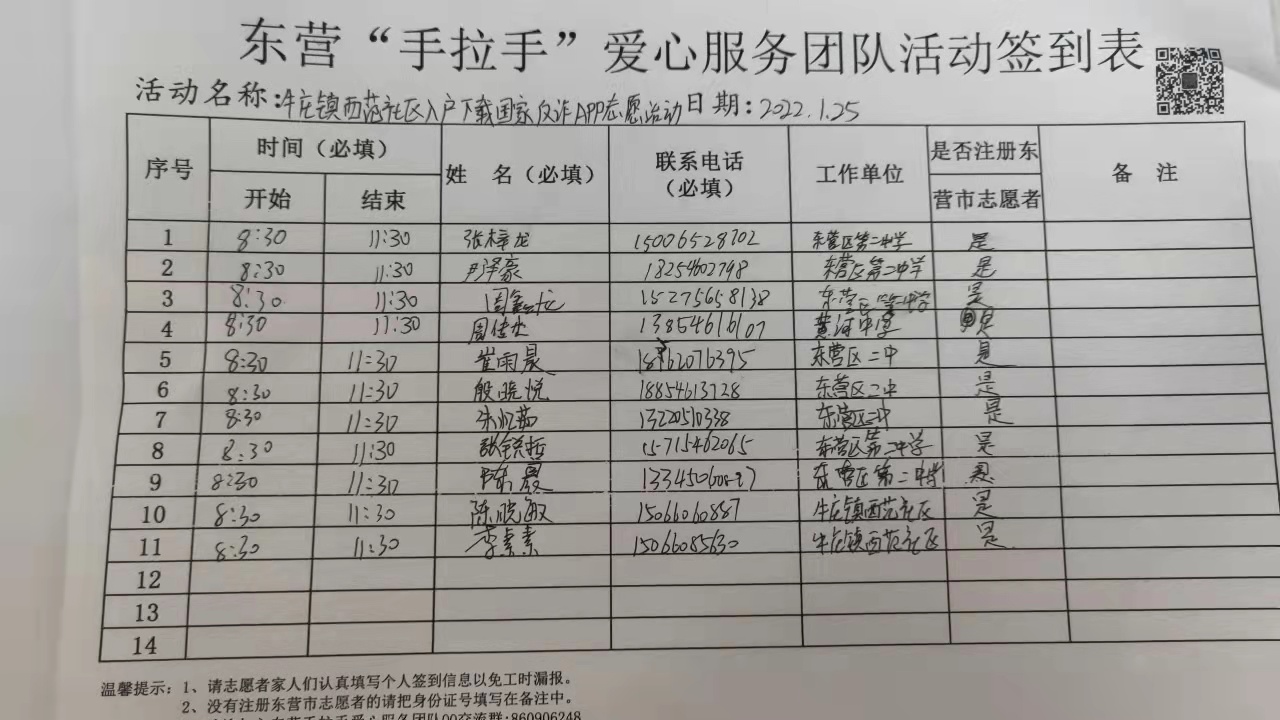 东营“手拉手”爱心服务团队活动签到表
活动名称:牛庄镇西范社区入户下载国家反诈APP志愿活动 日期:2022.1.25
序号 时间(必填) 姓 名(必填) 联系电话(必填) 工作单位 是否注册东营市志愿者 备 注
开始 结束
1 8:30 11:30 张梓龙 15006528702 东营区第二中学 是
2 8:30 11:30 尹泽豪 18254602798 东营区第二中学 是
3 8:30 11:30 周鑫龙 15275658138 东营区第二中学 是
4 8:30 11:30 周佳 13854616107 黄河中学 是
5 8:30 11:30 崔雨晨 2076395 东营区二中 是
6 8:30 11:30 殷晓悦 18854613728 东营区二中 是
7 8:30 11:30 朱 13220510338 东营区二中 是
8 8:30 11:30 张锐哲 15715462065 东营区第二中学 是
9 8:30 11:30 陈晨 东营区第二中学 是
10 8:30 11:30 陈晓敏 15066060887 牛庄镇西范社区 是
11 8:30 11:30 李素素 15066085630 牛庄镇西范社区 是
12
13
14
温馨提示:1、请志愿者家人们认真填写个人签到信息以免工时漏报。
2、没有注册东营市志愿者的请把身份证号填写在备注中。
东营手拉手爱心服务团队QQ交流群:860906248